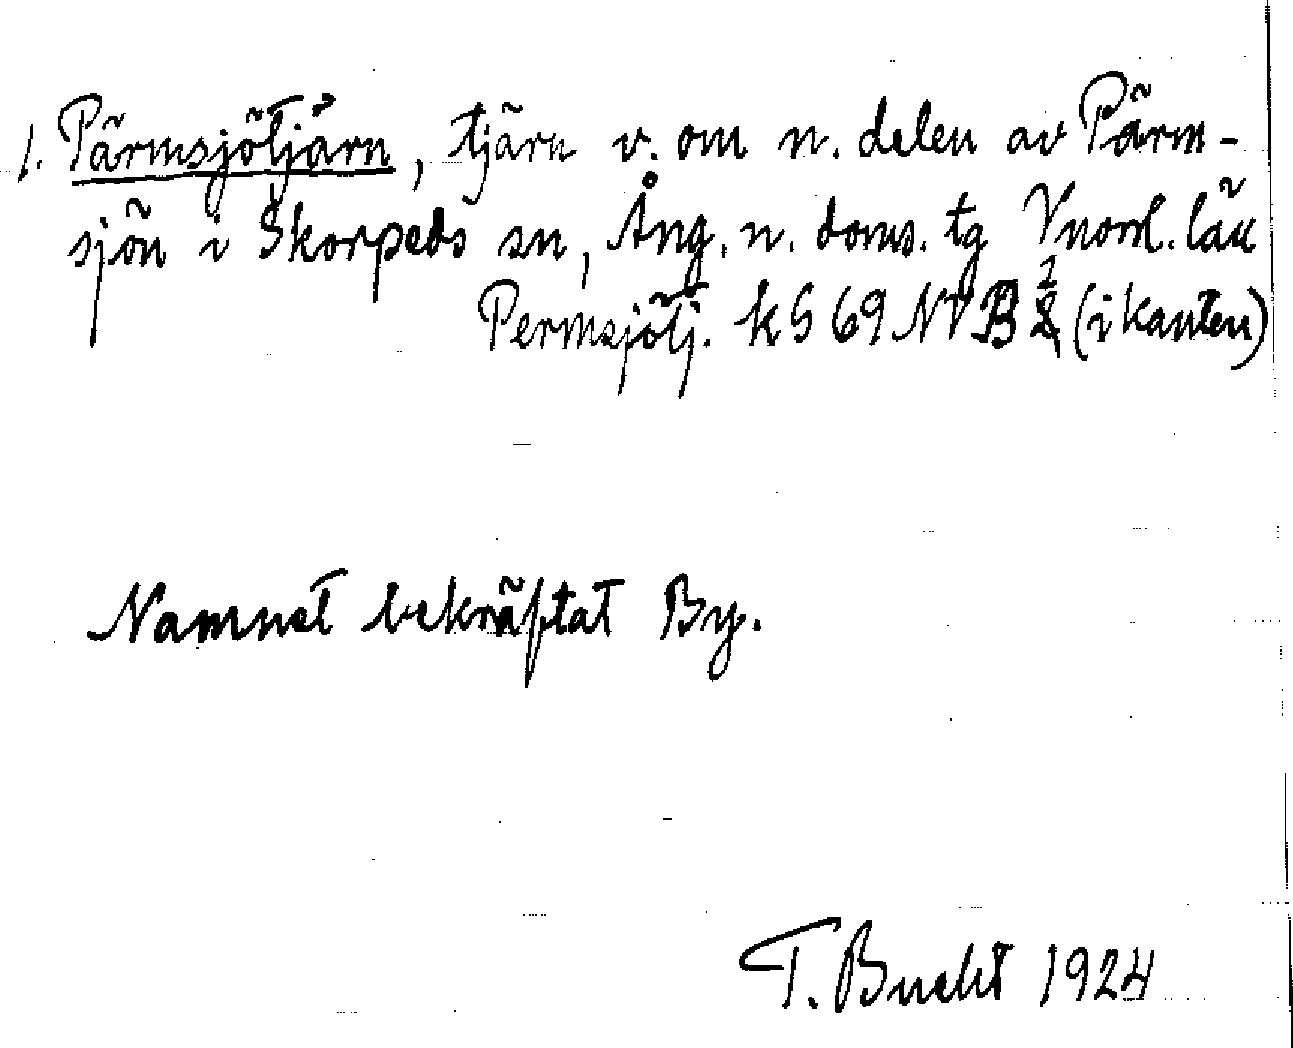 1. Pärmsjötjärn, tjärn v. om n. delen av Pärm-
sjön i Skorpeds sn, Ång. n. doms. tg Vnorrl. län
Permsjötj. kS 69 NV B (i kanten)
Namnet bekräftat By.
T. Bucht 1924